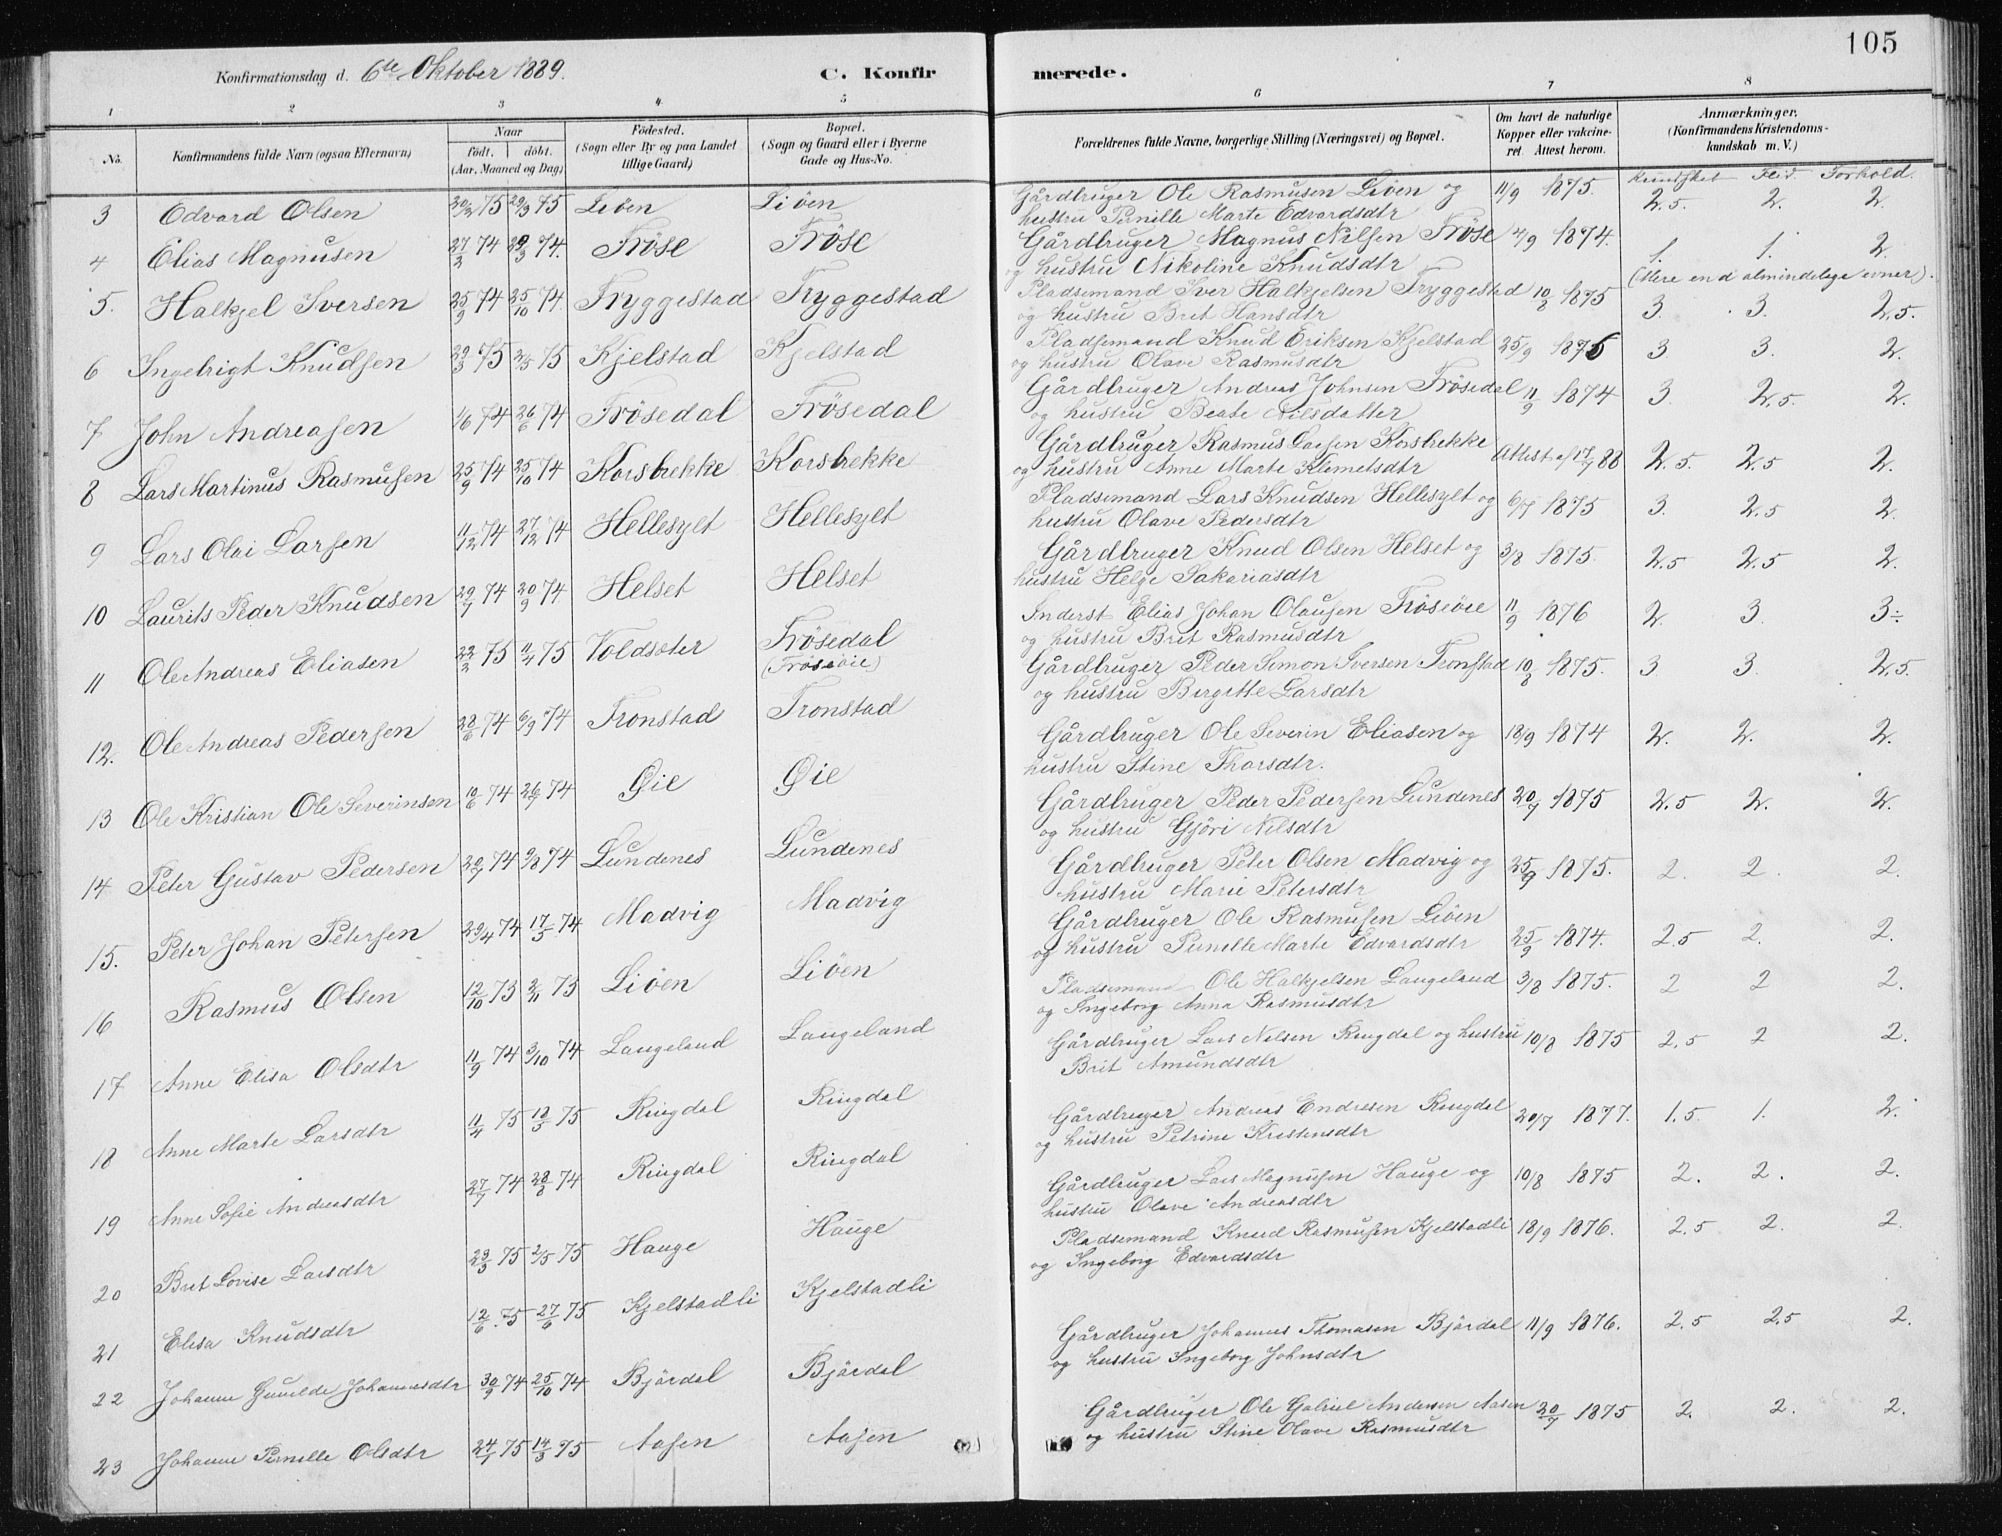 105
Konfirmationsdag d. 6te Oktober 1889.
C. Konfirmerede.
1 2 3 4 5 6 7 8
No.
Konfirmandens fulde Navn (ogsaa Efternavn)
Naar
født. døbt.
(Aar, Maaned og Dag)
Fødested.
(Sogn eller By og paa Landet
tillige Gaard)
Bopæl.
(Sogn og Gaard eller i Byerne
Gade og Hus-No.
Forældrenes fulde Navne, borgerlige Stilling (Næringsvei) og Bopæl.
Om havt de naturlige
Kopper eller vakcine-
ret. Attest herom.
Anmærkninger.
(Konfirmandens Kristendoms-
kundskab m. V.)
Kundskab Flid Forhold.
3 Edvard Olsen 20/2 75 29/3 75 Liöen Liöen Gårdbruger Ole Rasmusen Liöen og 11/9 1875. 2.5. 2. 2.
hustru Pernille Marte Edvardsdtr
4 Elias Magnusen 27/2 74 29/3 74. Fröse Fröse Gårdbruger Magnus Nilsen Fröse 4/9 1874. 1. 1. 2.
og hustru Nikoline Knudsdtr (Mere end almindelige evner).
5. Halkjel Iversen 25/9 74 25/10 74 Tryggestad Tryggestad Pladsemand Iver Halkjelsen Tryggestad 10/8 1875 3. 3. 2.5.
og hustru Brit Hansdtr
6 Ingebrigt Knudsen 29/3 75 2/5 75 Kjelstad Kjelstad Pladsemand Knud Eriksen Kjelstad 25/9 1875 3 3. 2.
og hustru Olave Rasmusdtr
7 John Andreasen 1/6 74 26/6 74 Frösedal Frösedal Gårdbruger Andreas Johnsen Frösedal 11/9 1874 3. 2.5. 2.
og hustru Beate Nilsdatter
8 Lars Martinus Rasmusen 25/9 74 25/10 74 Korsbrekke Korsbrekke Gårdbruger Rasmus Larsen Korsbrekke Attest af 17/7 88 2.5. 2.5 2.
og hustru Anne Marte Klemetsdtr
9 Lars Olai Larsen 11/12 74 27/12 74 Hellesylt Hellesylt Pladsemand Lars Knudsen Hellesylt og 6/7 1875 3. 2.5 2.
hustru Olave Pedersdtr
10 Laurits Peder Knudsen 29/7 74 20/9 74 Helset Helset Gårdbruger Knud Olsen Helset og 3/8 1875. 2.5 2.5 2.
hustru Helge Sakariasdtr
11 Ole Andreas Eliasen 22/2 75 11/4 75 Voldsæter Frösedal (Fröseöie) Inderst Elias Johan Olausen Fröseöie 11/9 1876 2. 3. 3÷
og hustru Brit Rasmusdtr
12. Ole Andreas Pedersen 28/6 74 6/9 74 Tronstad Tronstad Gårdbruger Peder Simon Iversen Tronstad 10/8 1875. 3 3. 2.5.
og hustru Birgitte Larsdtr
13 Ole Kristian Ole Severinsen 10/6 74 26/7 74 Øie Øie Gårdbruger Ole Severin Eliasen og 18/9 1874 2. 2. 2.
hustru Stine Thorsdtr.
14 Peter Gustav Pedersen 20/7 74 9/8 74 Lundenes Lundenes Gårdbruger Peder Pedersen Lundenes 20/7 1875 2.5 2. 2.
og hustru Gjöri Nilsdtr
15. Peter Johan Petersen 29/4 74 17/5 74 Madvig Madvig Gårdbruger Peter Olsen Madvig og 25/9 1875. 2. 2. 2.
hustru Marie Petersdtr
16 Rasmus Olsen 12/10 73 2/11 73 Liöen Liöen Gårdbruger Ole Rasmusen Liöen 25/9 1874. 2.5 2. 2.
og hustru Pernille Marte Edvardsdtr
17 Anne Elisa Olsdtr 11/9 74 3/10 74 Langeland Langeland Pladsemand Ole Halkjelsen Langeland 3/8 1875. 2 2 2.
og Ingeborg Anna Rasmusdtr
18 Anne Marte Larsdtr 11/4 75 12/5 75 Ringdal Ringdal Gårdbruger Lars Nilsen Ringdal og hustru 10/8 1875 2.5 2 2.
Brit Amundsdtr
19 Anne Sofie Andreasdtr 27/7 74 28/8 74 Ringdal Ringdal Gårdbruger Andreas Endresen Ringdal 20/7 1877. 1.5. 1. 2.
og hustru Petrine Kristensdtr
20 Brit Lovise Larsdtr 29/3 75 2/5 75 Hauge Hauge Gårdbruger Lars Magnusen Hauge og 10/8 1875 2. 2. 2.
hustru Olave Andreasdtr
21 Elisa Knudsdtr 12/6. 75 27/6 75 Kjelstadli Kjelstadli Pladsemand Knud Rasmusen Kjelstadli 18/9 1876. 2.5 2. 2.
og Ingeborg Edvardsdtr
22 Johanne Gunilde Johannesdtr 30/9 74 25/10 74 Björdal Björdal Gårdbruger Johannes Thomasen Björdal 11/9 1876. 2.5 2.5 2.
og hustru Ingeborg Johnsdtr
23 Johanne Pernille Olsdtr 24/1 75 14/3 75 Aasen Aasen Gårdbruger Ole Gabriel Andersen Aasen 20/7 1875 2. 2. 2.
og hustru Stine Olave Rasmusdtr